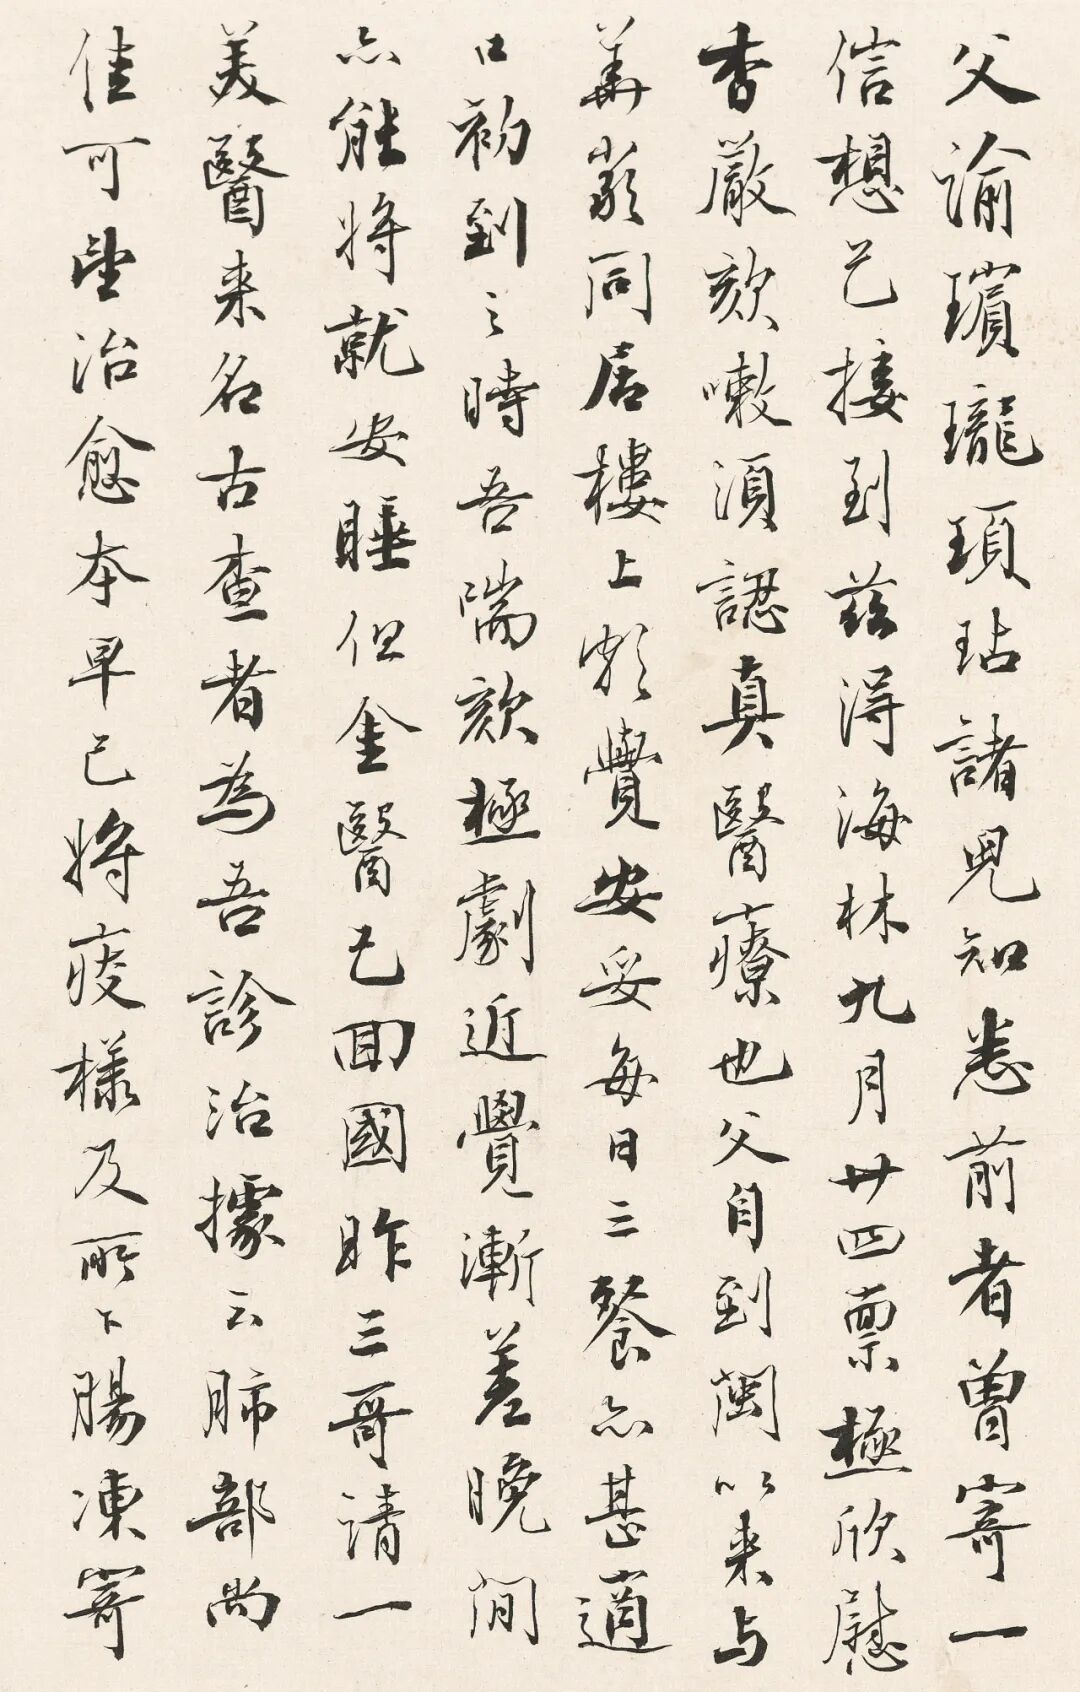 父諭璸瓏頊玷諸兒知悉前者曾寄一
信想已接到茲得海林九月廿四稟極欣慰
香嚴欬嗽須認真醫療也父自到閩以來与
同居樓上頗覺安妥每日三餐亦甚適
口初到之時吾喘欬極劇近覺漸差晚間
亦能將就安睡但金醫已回國昨三哥請一
美醫来名古查者為吾診治據云肺部尚
佳可望治愈本早已將痰樣及所下腸凍寄